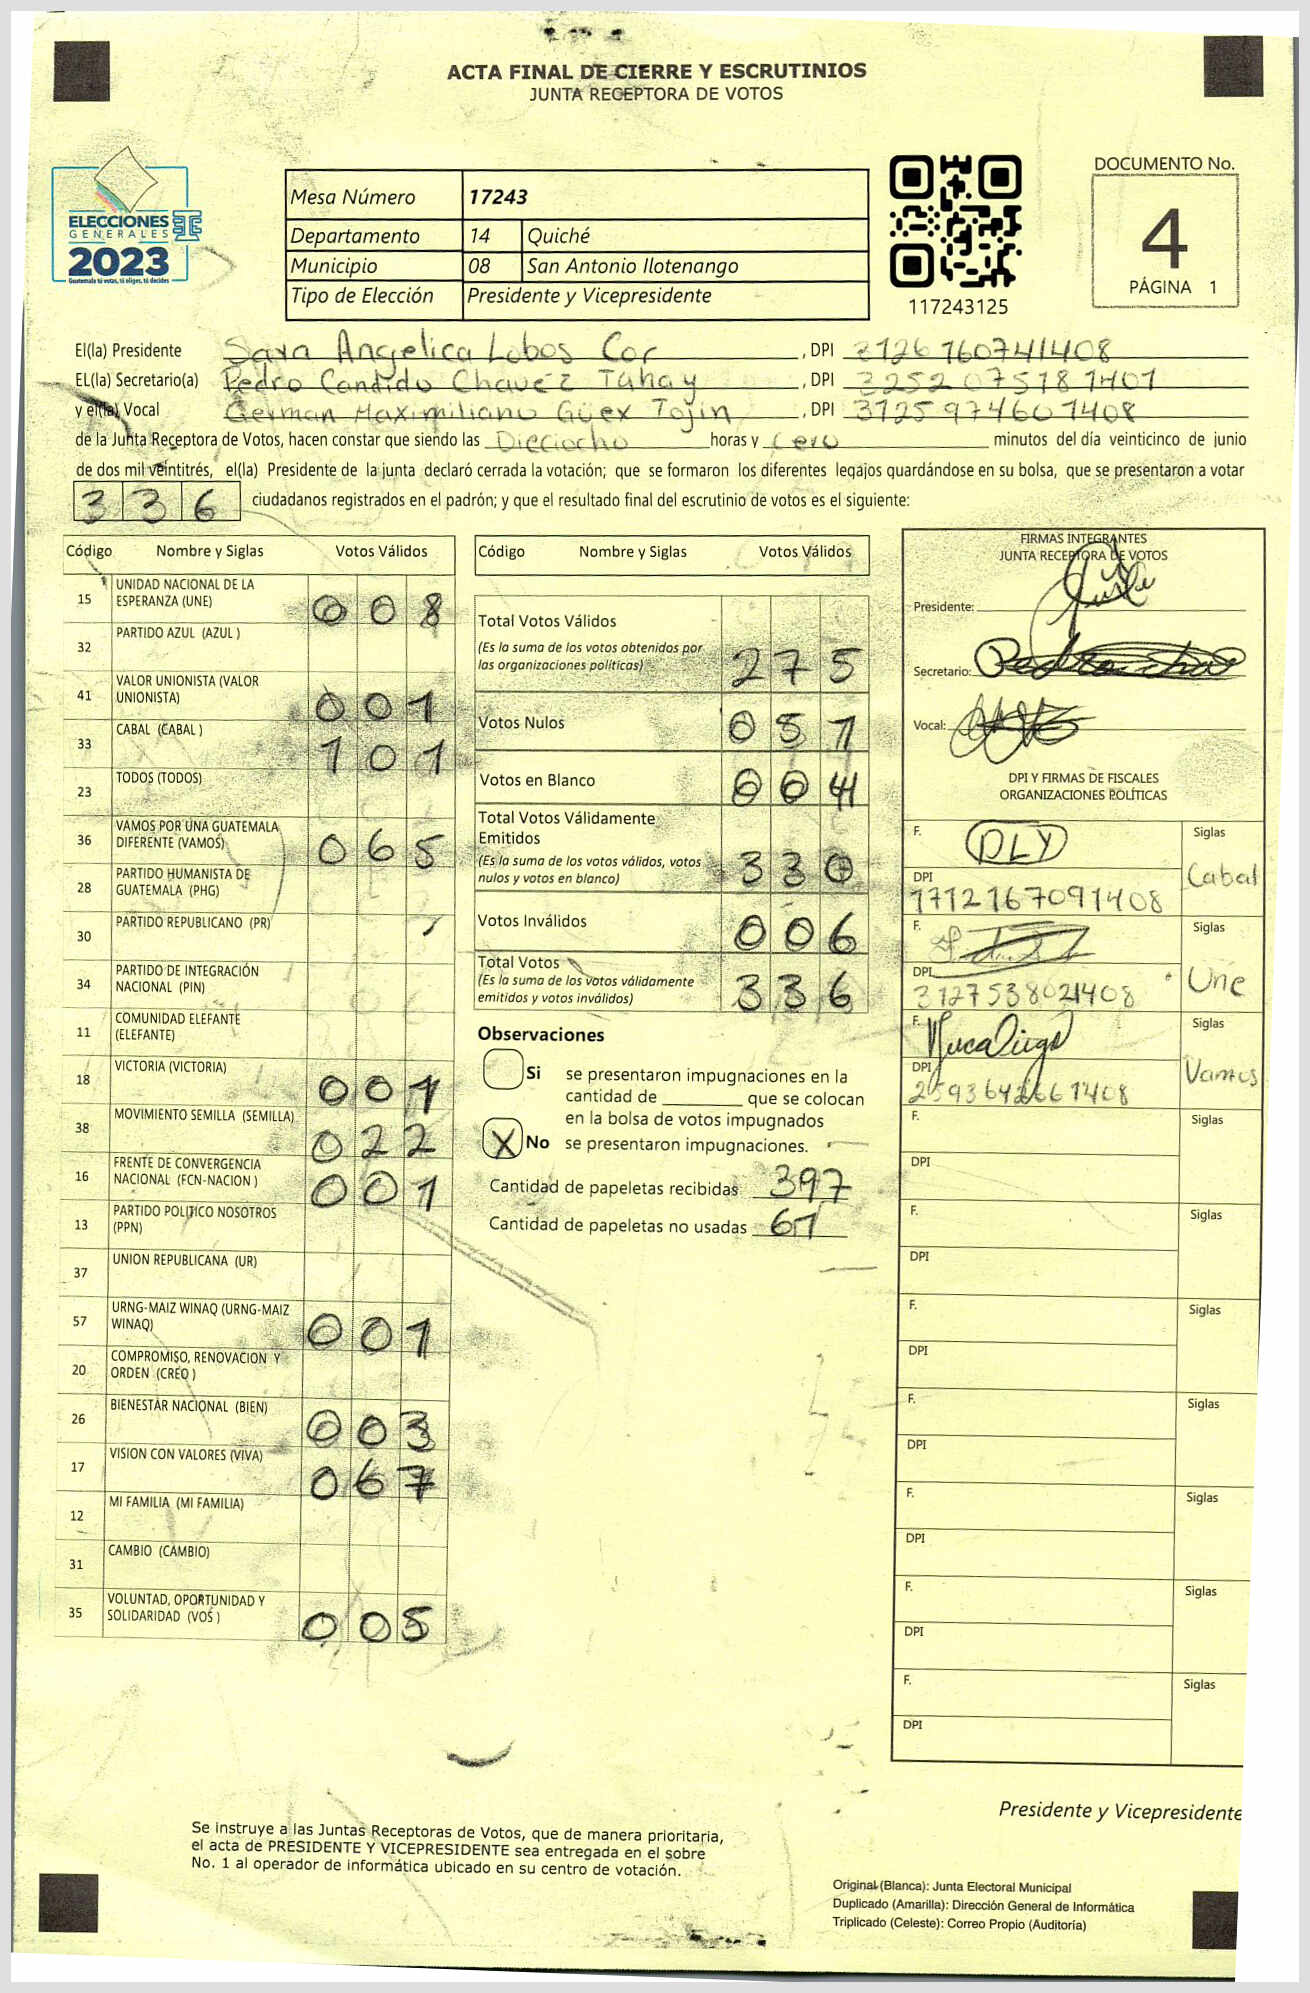 ACTA FINAL DE CIERRE Y ESCRUTINIOS
JUNTA RECEPTORA DE VOTOS
ELECCIONES
GENERALES
2023
Guatemala tú votas, tú eliges, tú decides
Mesa Número 17243
Departamento 14 Quiché
Municipio 08 San Antonio Ilotenango
Tipo de Elección Presidente y Vicepresidente
117243125
DOCUMENTO No.
4
PÁGINA 1
El(la) Presidente Sara Angelica Lobos Cor , DPI 3126160741408
EL(la) Secretario(a) Pedro Candido Chavéz Tuhay , DPI 3252075181401
y el(la) Vocal German Maximiliano Güex Tojin , DPI 3125974601408
de la Junta Receptora de Votos, hacen constar que siendo las Dieciocho horas y cero minutos del día veinticinco de junio
de dos mil veintitrés, el(la) Presidente de la junta declaró cerrada la votación; que se formaron los diferentes legajos guardándose en su bolsa, que se presentaron a votar
336 ciudadanos registrados en el padrón; y que el resultado final del escrutinio de votos es el siguiente:
Código Nombre y Siglas Votos Válidos
15 UNIDAD NACIONAL DE LA ESPERANZA (UNE) 008
32 PARTIDO AZUL (AZUL )
41 VALOR UNIONISTA (VALOR UNIONISTA) 001
33 CABAL (CABAL ) 101
23 TODOS (TODOS)
36 VAMOS POR UNA GUATEMALA DIFERENTE (VAMOS) 065
28 PARTIDO HUMANISTA DE GUATEMALA (PHG)
30 PARTIDO REPUBLICANO (PR)
34 PARTIDO DE INTEGRACIÓN NACIONAL (PIN)
11 COMUNIDAD ELEFANTE (ELEFANTE)
18 VICTORIA (VICTORIA) 001
38 MOVIMIENTO SEMILLA (SEMILLA) 022
16 FRENTE DE CONVERGENCIA NACIONAL (FCN-NACION ) 001
13 PARTIDO POLITICO NOSOTROS (PPN)
37 UNION REPUBLICANA (UR)
57 URNG-MAIZ WINAQ (URNG-MAIZ WINAQ) 001
20 COMPROMISO, RENOVACION Y ORDEN (CREO )
26 BIENESTAR NACIONAL (BIEN) 003
17 VISION CON VALORES (VIVA) 067
12 MI FAMILIA (MI FAMILIA)
31 CAMBIO (CAMBIO)
35 VOLUNTAD, OPORTUNIDAD Y SOLIDARIDAD (VOS ) 005
Código Nombre y Siglas Votos Válidos
Total Votos Válidos
(Es la suma de los votos obtenidos por
las organizaciones políticas) 275
Votos Nulos 051
Votos en Blanco 004
Total Votos Válidamente
Emitidos
(Es la suma de los votos válidos, votos
nulos y votos en blanco) 330
Votos Inválidos 006
Total Votos
(Es la suma de los votos válidamente
emitidos y votos inválidos) 336
Observaciones
Si se presentaron impugnaciones en la
cantidad de ________ que se colocan
en la bolsa de votos impugnados
X No se presentaron impugnaciones.
Cantidad de papeletas recibidas 397
Cantidad de papeletas no usadas 61
FIRMAS INTEGRANTES
JUNTA RECEPTORA DE VOTOS
Presidente:
Secretario:
Vocal:
DPI Y FIRMAS DE FISCALES
ORGANIZACIONES POLÍTICAS
F. DLY Siglas
DPI Cabal
1712167091408
F. Siglas
DPI Une
3127538021408
F. Siglas
DPI Vamos
2593642661408
F. Siglas
DPI
F. Siglas
DPI
F. Siglas
DPI
F. Siglas
DPI
F. Siglas
DPI
F. Siglas
DPI
F. Siglas
DPI
Presidente y Vicepresidente
Se instruye a las Juntas Receptoras de Votos, que de manera prioritaria,
el acta de PRESIDENTE Y VICEPRESIDENTE sea entregada en el sobre
No. 1 al operador de informática ubicado en su centro de votación.
Original (Blanca): Junta Electoral Municipal
Duplicado (Amarilla): Dirección General de Informática
Triplicado (Celeste): Correo Propio (Auditoría)